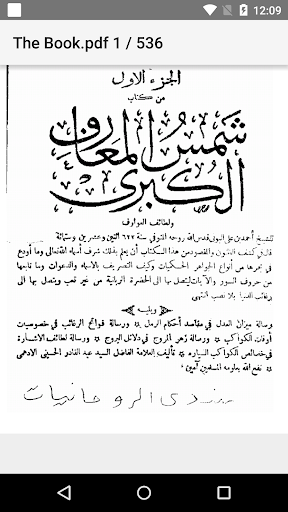 12:09
The Book.pdf 1 / 536
الجزء الاول
من كتاب
شمس المعارف
الكبرى
ولطائف العوارف
للشيخ أحمد بن على البونى قدس الله روحه المتوفى سنة ٦٢٢ اثنين وعشرين وستمائة
قال فى كشف الظنون والمقصود من هذا الكتاب أن يعلم بذلك شرف أسماء الله تعالى وما أودع
فى بحرها من أنواع الجواهر الحكميات وكيف التصريف بالاسماء والدعوات وما تابعها
من حروف السور والآيات ليتصل بها الى الحضرة الربانية من غير تعب ويتصل بها الى
رغائب الدنيا بلا نصب انتهى
ويليه
رسالة ميزان العدل فى مقاصد أحكام الرمل ورسالة فواتح الرغائب فى خصوصيات
أوقات الكواكب ورسالة زهر المروج فى دلائل البروج ورسالة لطائف الاشارة
فى خصائص الكواكب السيارة تأليف العلامة الفاضل السيد عبد القادر الحسينى الادهمى
نفع الله بعلومه المسلمين آمين
منتدى الروحانيات